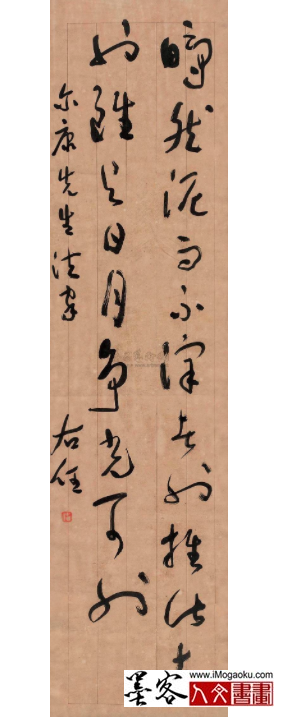 皭然泥而不滓者也推此志
也雖與日月爭光可也
尔康先生法家
右任
www.iMogaoku.com
墨客
人文書畫